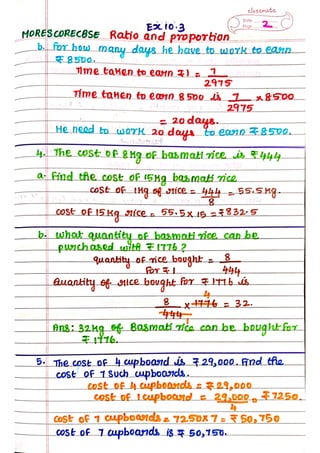 classmate
Date
Page 2
Ex 10.3
MORESCORECBSE Ratio and proportion
b. For how many days he have to work to earn
₹ 8500.
Time taken to earn ₹1 = 7/2975
Time taken to earn 8500 is 7/2975 x 8500
= 20 days.
He need to work 20 days to earn ₹ 8500.
4. The cost of 8 Kg of basmati rice is ₹ 444
a. Find the cost of 15 Kg basmati rice
cost of 1Kg of rice = 444/8 = 55.5 Kg.
cost of 15 Kg rice = 55.5 x 15 = ₹832.5
b. What quantity of basmati rice can be
purchased with ₹ 1776?
quantity of rice bought for ₹ 1 = 8/444
Quantity of rice bought for ₹ 1776 is
8/444 x 1776 4 = 32.
Ans: 32 Kg of Basmati rice can be bought for
₹ 1776.
5. The cost of 4 cupboard is ₹ 29,000. Find the
cost of 7 such cupboards.
cost of 4 cupboards = ₹ 29,000
cost of 1 cupboard = 29,000/4 = ₹ 7250.
cost of 7 cupboards = 7250 x 7 = ₹ 50,750
cost of 7 cupboards is ₹ 50,750.